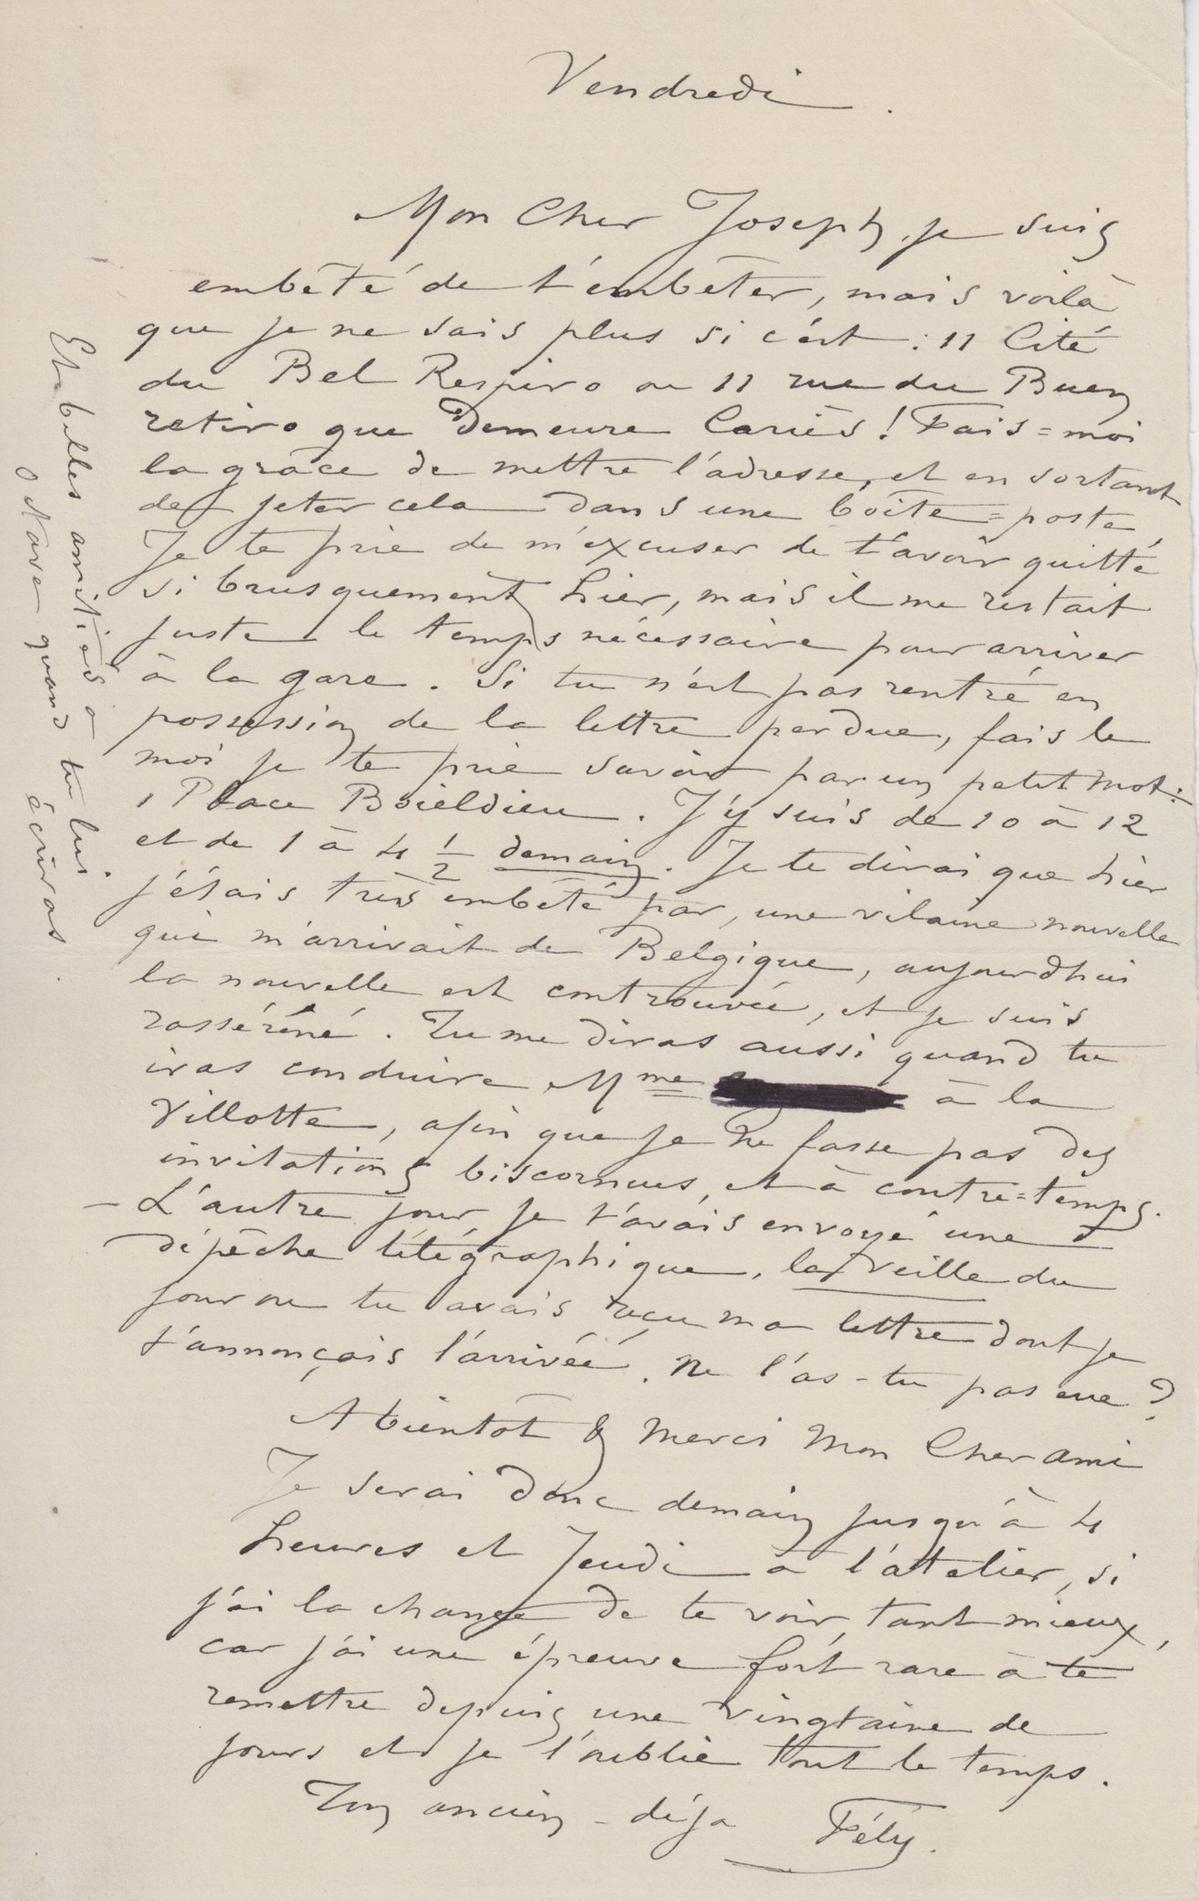 Vendredi.
Mon Cher Joseph, je suis
embêté de t'embêter, mais voilà
que je ne sais plus si c'est : 11 Cité
du Bel Respiro ou 11 rue du Buen
retiro que Demeure Cariès ! Fais=moi
la grâce de mettre l'adresse, et en sortant
de jeter cela dans une boîte=poste,
Je te prie de m'excuser de t'avoir quitté
si brusquement hier, mais il me restait
juste le temps nécessaire pour arriver
à la gare. Si tu n'est pas rentré en
possession de la lettre perdue, fais le
moi je te prie savoir par un petit mot :
1 Place Boieldieu. J'y suis de 10 à 12
et de 1 à 4 ½ demain. Je te dirai que hier
j'étais très embêté par, une vilaine nouvelle
qui m'arrivait de Belgique, aujourdhui
la nouvelle est controuvée, et je suis
rasséréné. Tu me diras aussi quand tu
iras conduire Mme à la
Villotte, afin que je ne fasse pas des
invitations biscornues, et à contre=temps.
– L'autre jour je t'avais envoyé une
dépêche télégraphique, la veille du
jour ou tu avais reçu ma lettre dont je
t'annonçais l'arrivéé. Ne l'as-tu pas eue ?
A bientôt & merci Mon Cher ami
Je serai donc demain jusqu'à 4
heures et Jeudi à l'atelier, si
j'ai la chance de te voir, tant mieux,
car j'ai une épreuve fort rare à te
remettre depuis une vingtaine de
jours et je l'oublie tout le temps.
Ton ancien – déja Fély.
Et belles amitiés a
Nave quand tu lui
écriras.